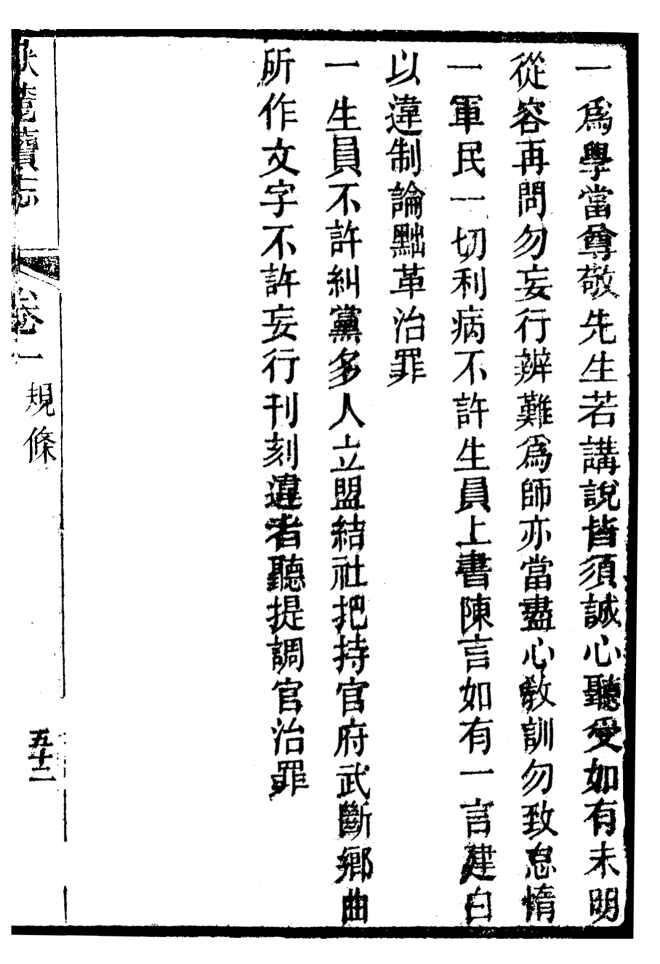 一爲學當尊敬先生若講說皆須誠心聽受如有未明
從容再問勿妄行辨難爲師亦當盡心敎訓勿致怠惰
一軍民一切利病不許生員上書陳言如有一言建白
以違制論黜革治罪
一生員不許糾黨多人立盟結社把持官府武斷鄉曲
所作文字不許妄行刊刻違者聽提調官治罪
讀志
卷一
規條
五十二